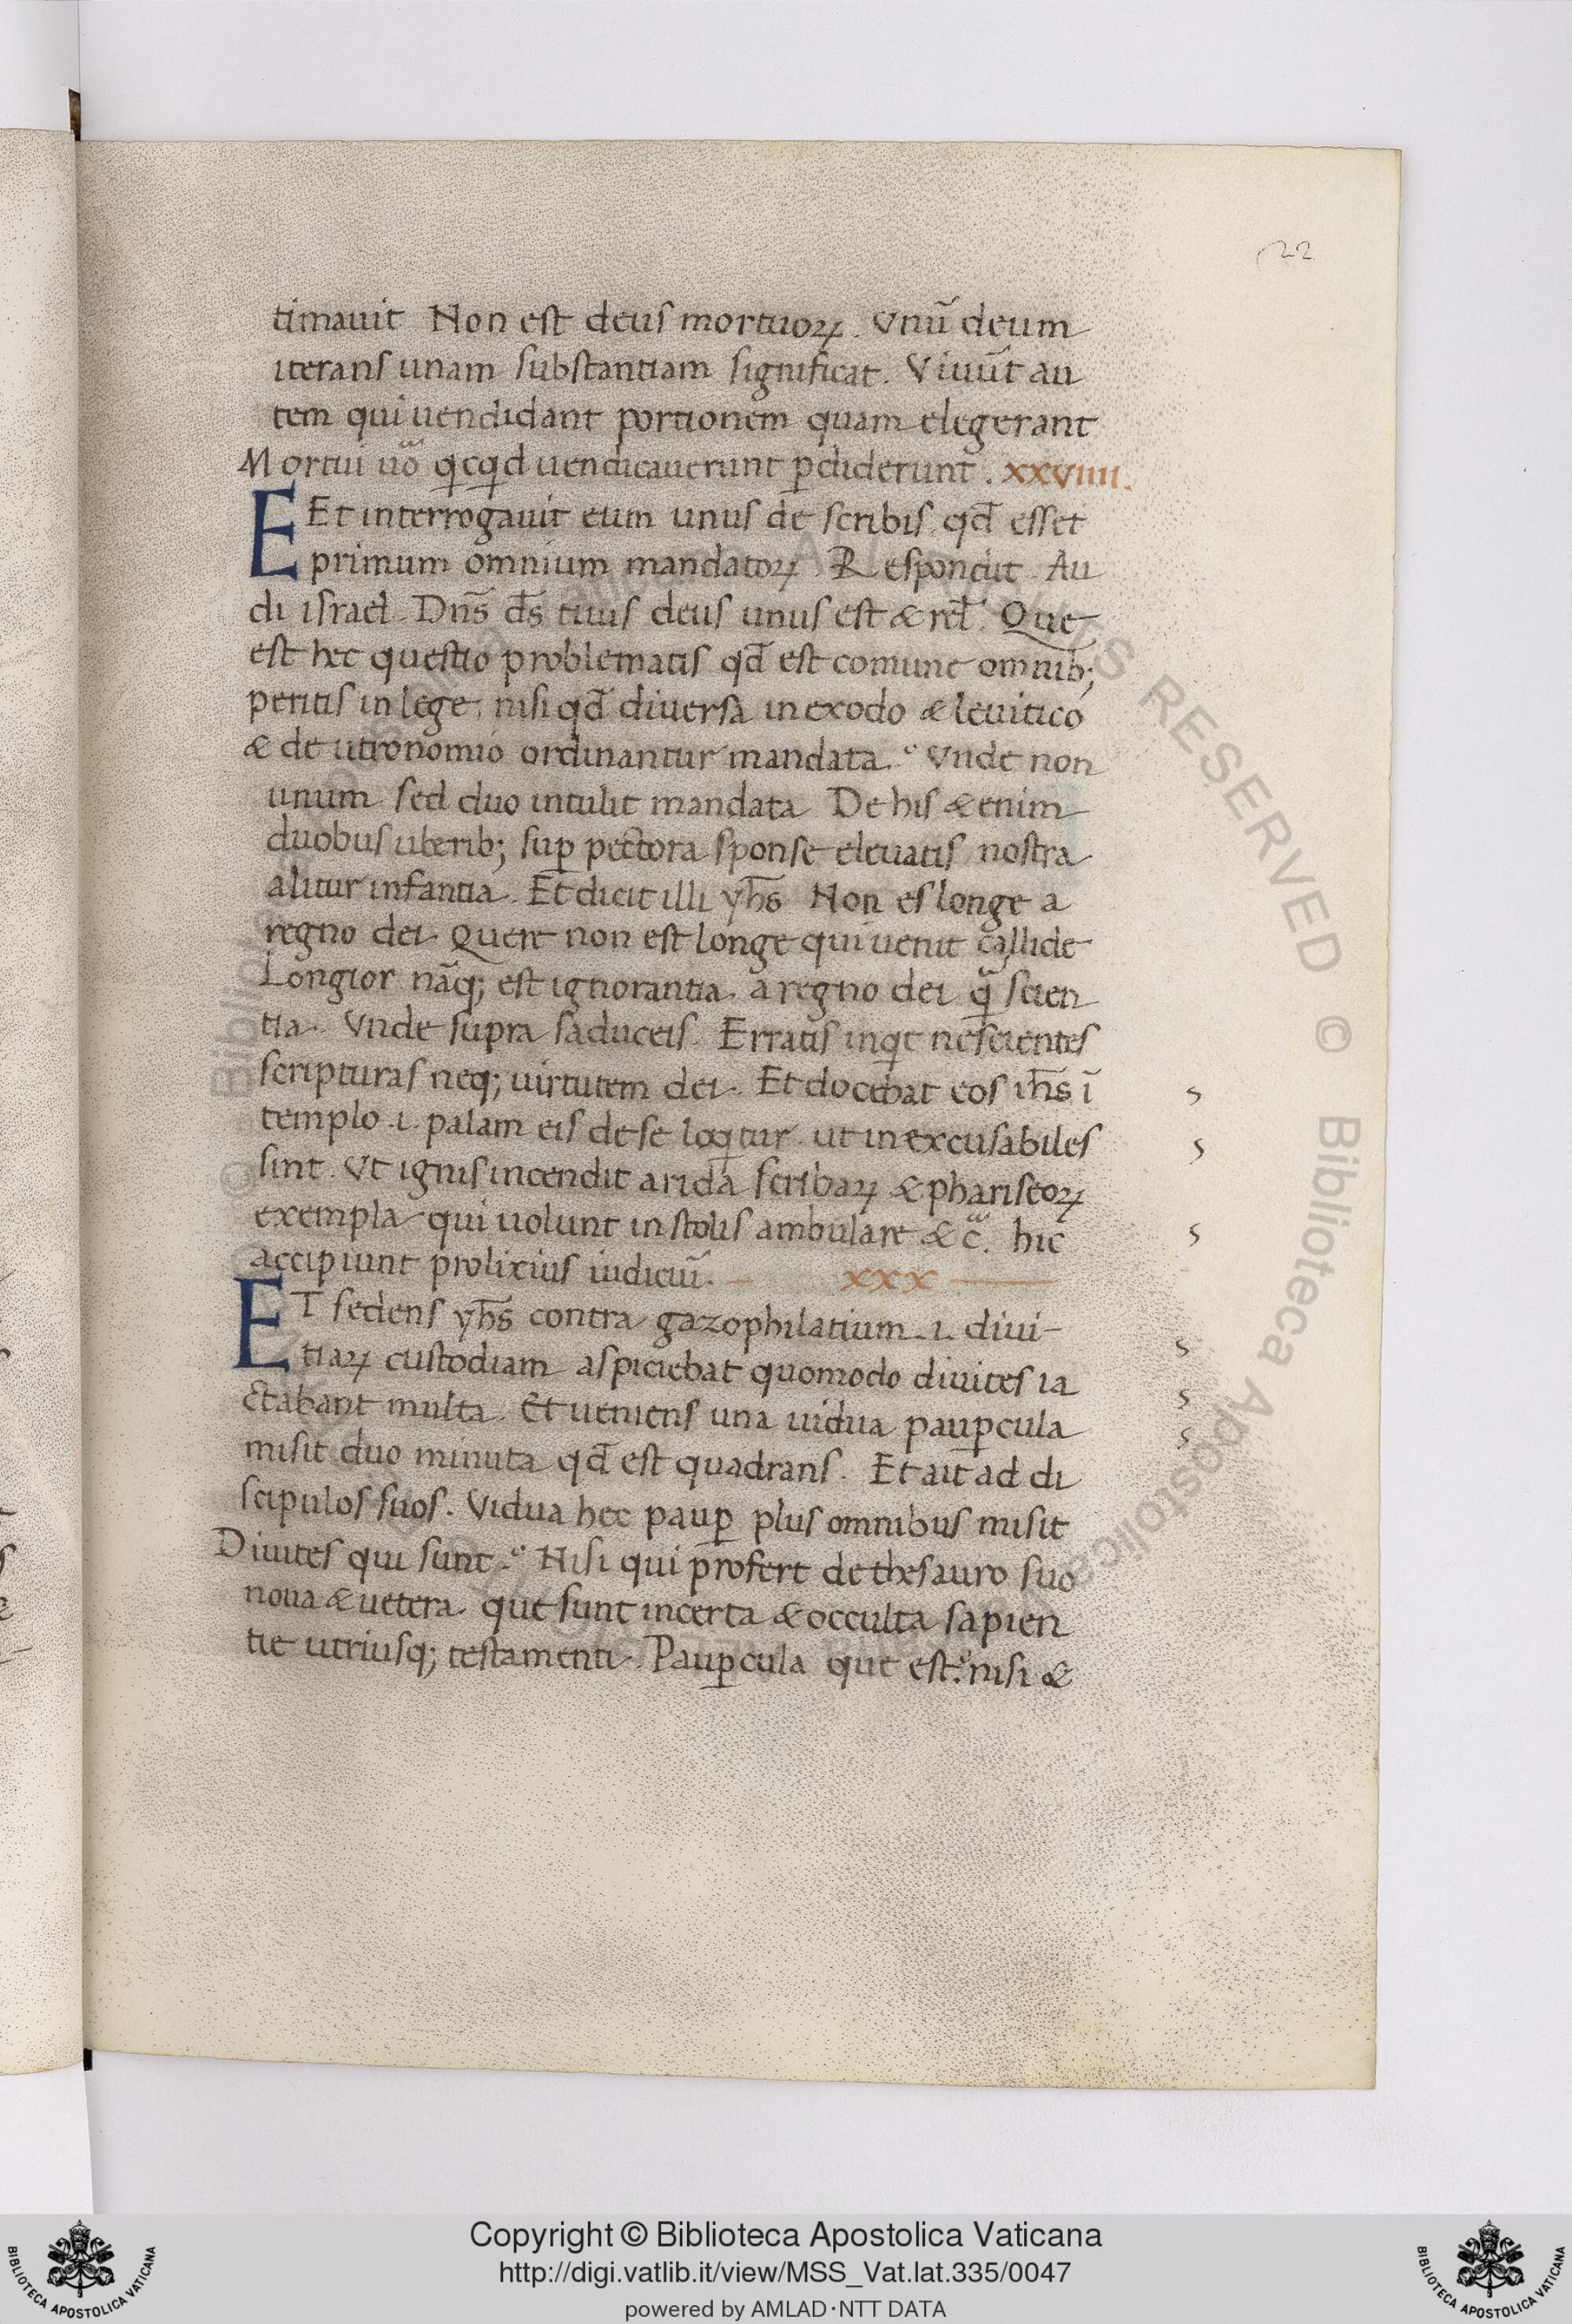 22
timauit Non est deus mortuoꝝ. Vnū deum
iterans unam substantiam significat. Viuūt au
tem qui uendidant portionem quam elegerant
Mortui uo̊ qͥcqͥd uendicauerunt ꝑdiderunt. xxviiii.
E Et interrogauit eum unus de scribis qd̄ esset
primum omnium mandatoꝝ. Respondit. Au
di israel. Dn̄s d̄s tuus deus unus est & rel̄. Que
est hec questio problematis qd̄ est comune omnib;
peritis in lege, nisi qd̄ diuersa in exodo & leuitico
& deutronomio ordinantur mandata. Vnde non
unum sed duo intulit mandata De his & enim
duobus uberib; suꝑ pectora sponse eleuatis nostra
alitur infantia. Et dicit illi yh̄s Non es longe a
regno dei. Quere non est longe qui uenit callide
Longior nāq; est ignorantia a regno dei qᷓ scien
tia. Vnde supra saduceis. Erratis inqͥt nescientes
scripturas neq; uirtutem dei. Et docebat eos ih̄s ī
templo .i. palam eis de se loqͥtur ut inexcusabiles
sint. Vt ignis incendit arida scribaꝝ & phariseoꝝ
exempla qui uolunt in stolis ambulare & cᷓ. hic
accipiunt prolixius iudiciū. xxx
ET sedens yh̄s contra gazophilatium .i. diui-
tiaꝝ custodiam aspiciebat quomodo diuites ia
ctabant multa. Et ueniens una uidua pauꝑcula
misit duo minuta qd̄ est quadrans. Et ait ad di
scipulos suos. Vidua hec pauꝑ plus omnibus misit
Diuites qui sunt. Nisi qui profert de thesauro suo
noua & uetera que sunt incerta & occulta sapien
tie utriusq; testamenti. Pauꝑcula que est. nisi &
© Biblioteca Apostolica Vaticana ALL RIGHTS RESERVED © Biblioteca Apostolica Vaticana
Copyright © Biblioteca Apostolica Vaticana
http://digi.vatlib.it/view/MSS_Vat.lat.335/0047
powered by AMLAD·NTT DATA
BIBLIOTECA APOSTOLICA VATICANA
BIBLIOTECA APOSTOLICA VATICANA